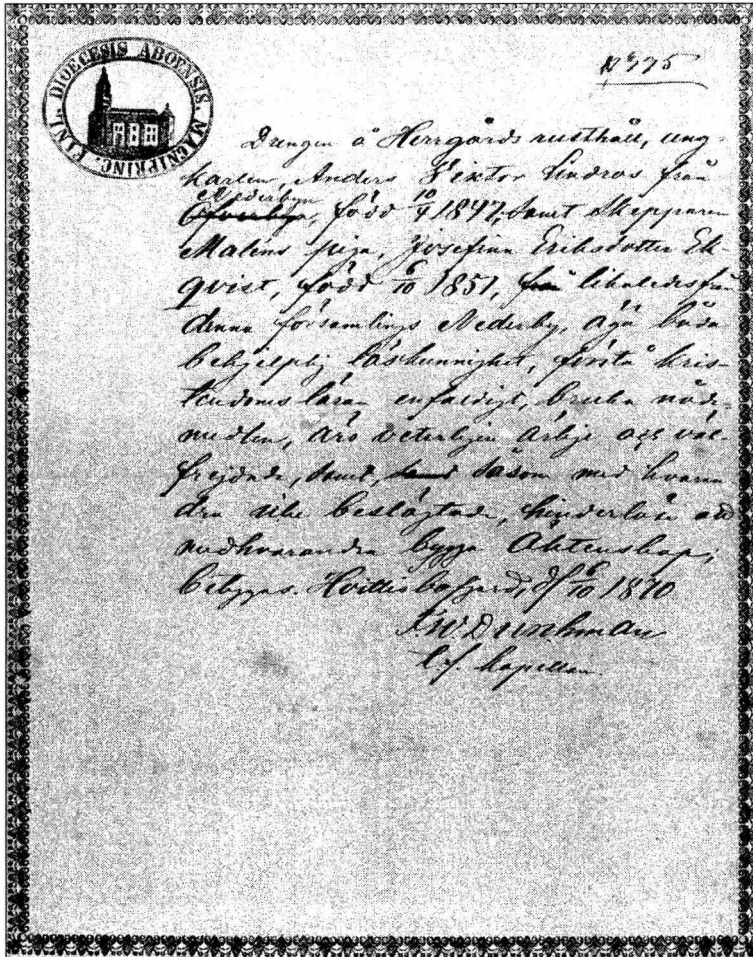 DIOECESIS ABOENSIS, MAGNIPRINC. FINL.
N:o 775
Drengen å Herrgårds rusthåll, ung-
karlen Anders Viktor Lindros från
Nederbyn
Öfverbyn, född 10/4 1847, samt Skepparen
Maléns piga, Josefina Eriksdotter Ek-
qvist, född 6/10 1851, från likaledes från
denna församlings Nederby, äga båda
behjelplig läskunnighet, förstå kris-
tendomsläran enfaldigt, bruka nåde-
medlen, äro veterligen ärlige och väl-
frejdade, samt, såsom med hvaran-
dra icke beslägtade, hinderlöse att
medhvarandra bygga Äktenskap;
betygas. Hvittisbofjerd, d. 6/10 1870
F.W. Dunkman
t.f. kapellan.